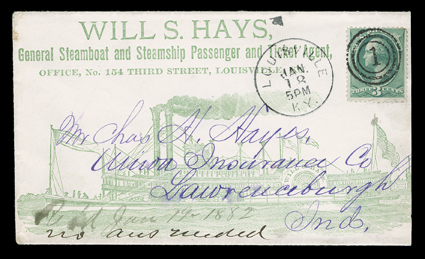 WILL S. HAYS,
General Steamboat and Steamship Passenger and Ticket Agent,
OFFICE, No. 154 THIRD STREET, LOUISVILLE
LOUISVILLE
JAN.
18
5PM
KY.
1
THREE 3 CENTS
Mr Chas H. Hayes,
Union Insurance Co
Lawrenceburgh
Ind.
Jan 19-1882
no ans needed